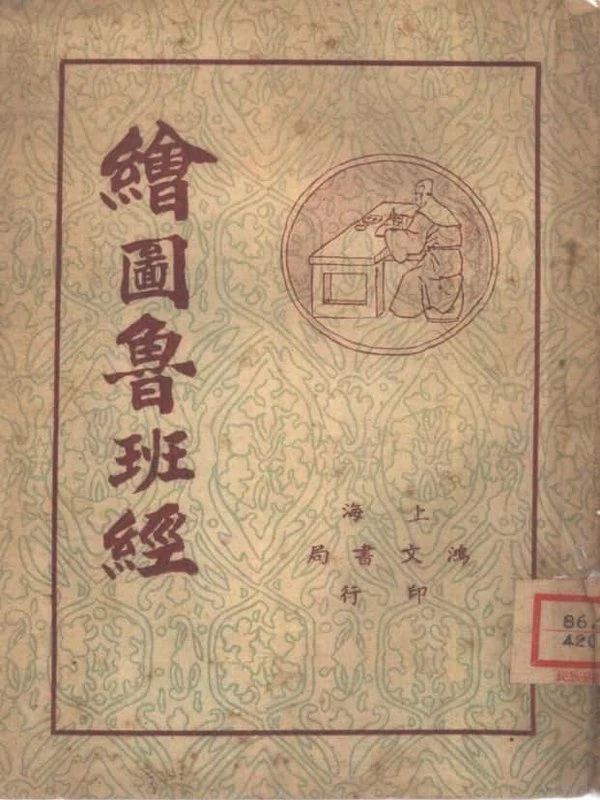 繪圖魯班經
上海
鴻文書局
印行
86.
420